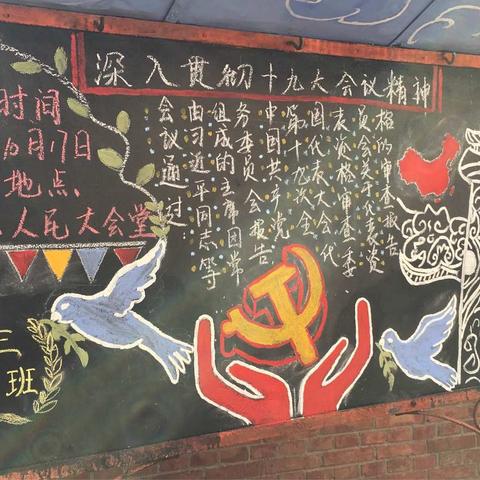 深入贯彻十九大会议精神
时间
10月17日
地点
人民大会堂
格的审查报告
员会关于代表资
表资格审查委
国代表大会代
第十九次全
中国共产党
务委员会报告
组成的主席团常
由习近平同志等
会议通过
三
班